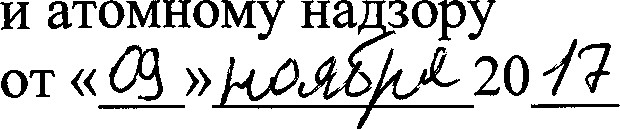 и атомному надзору
от «09» ноября 2017